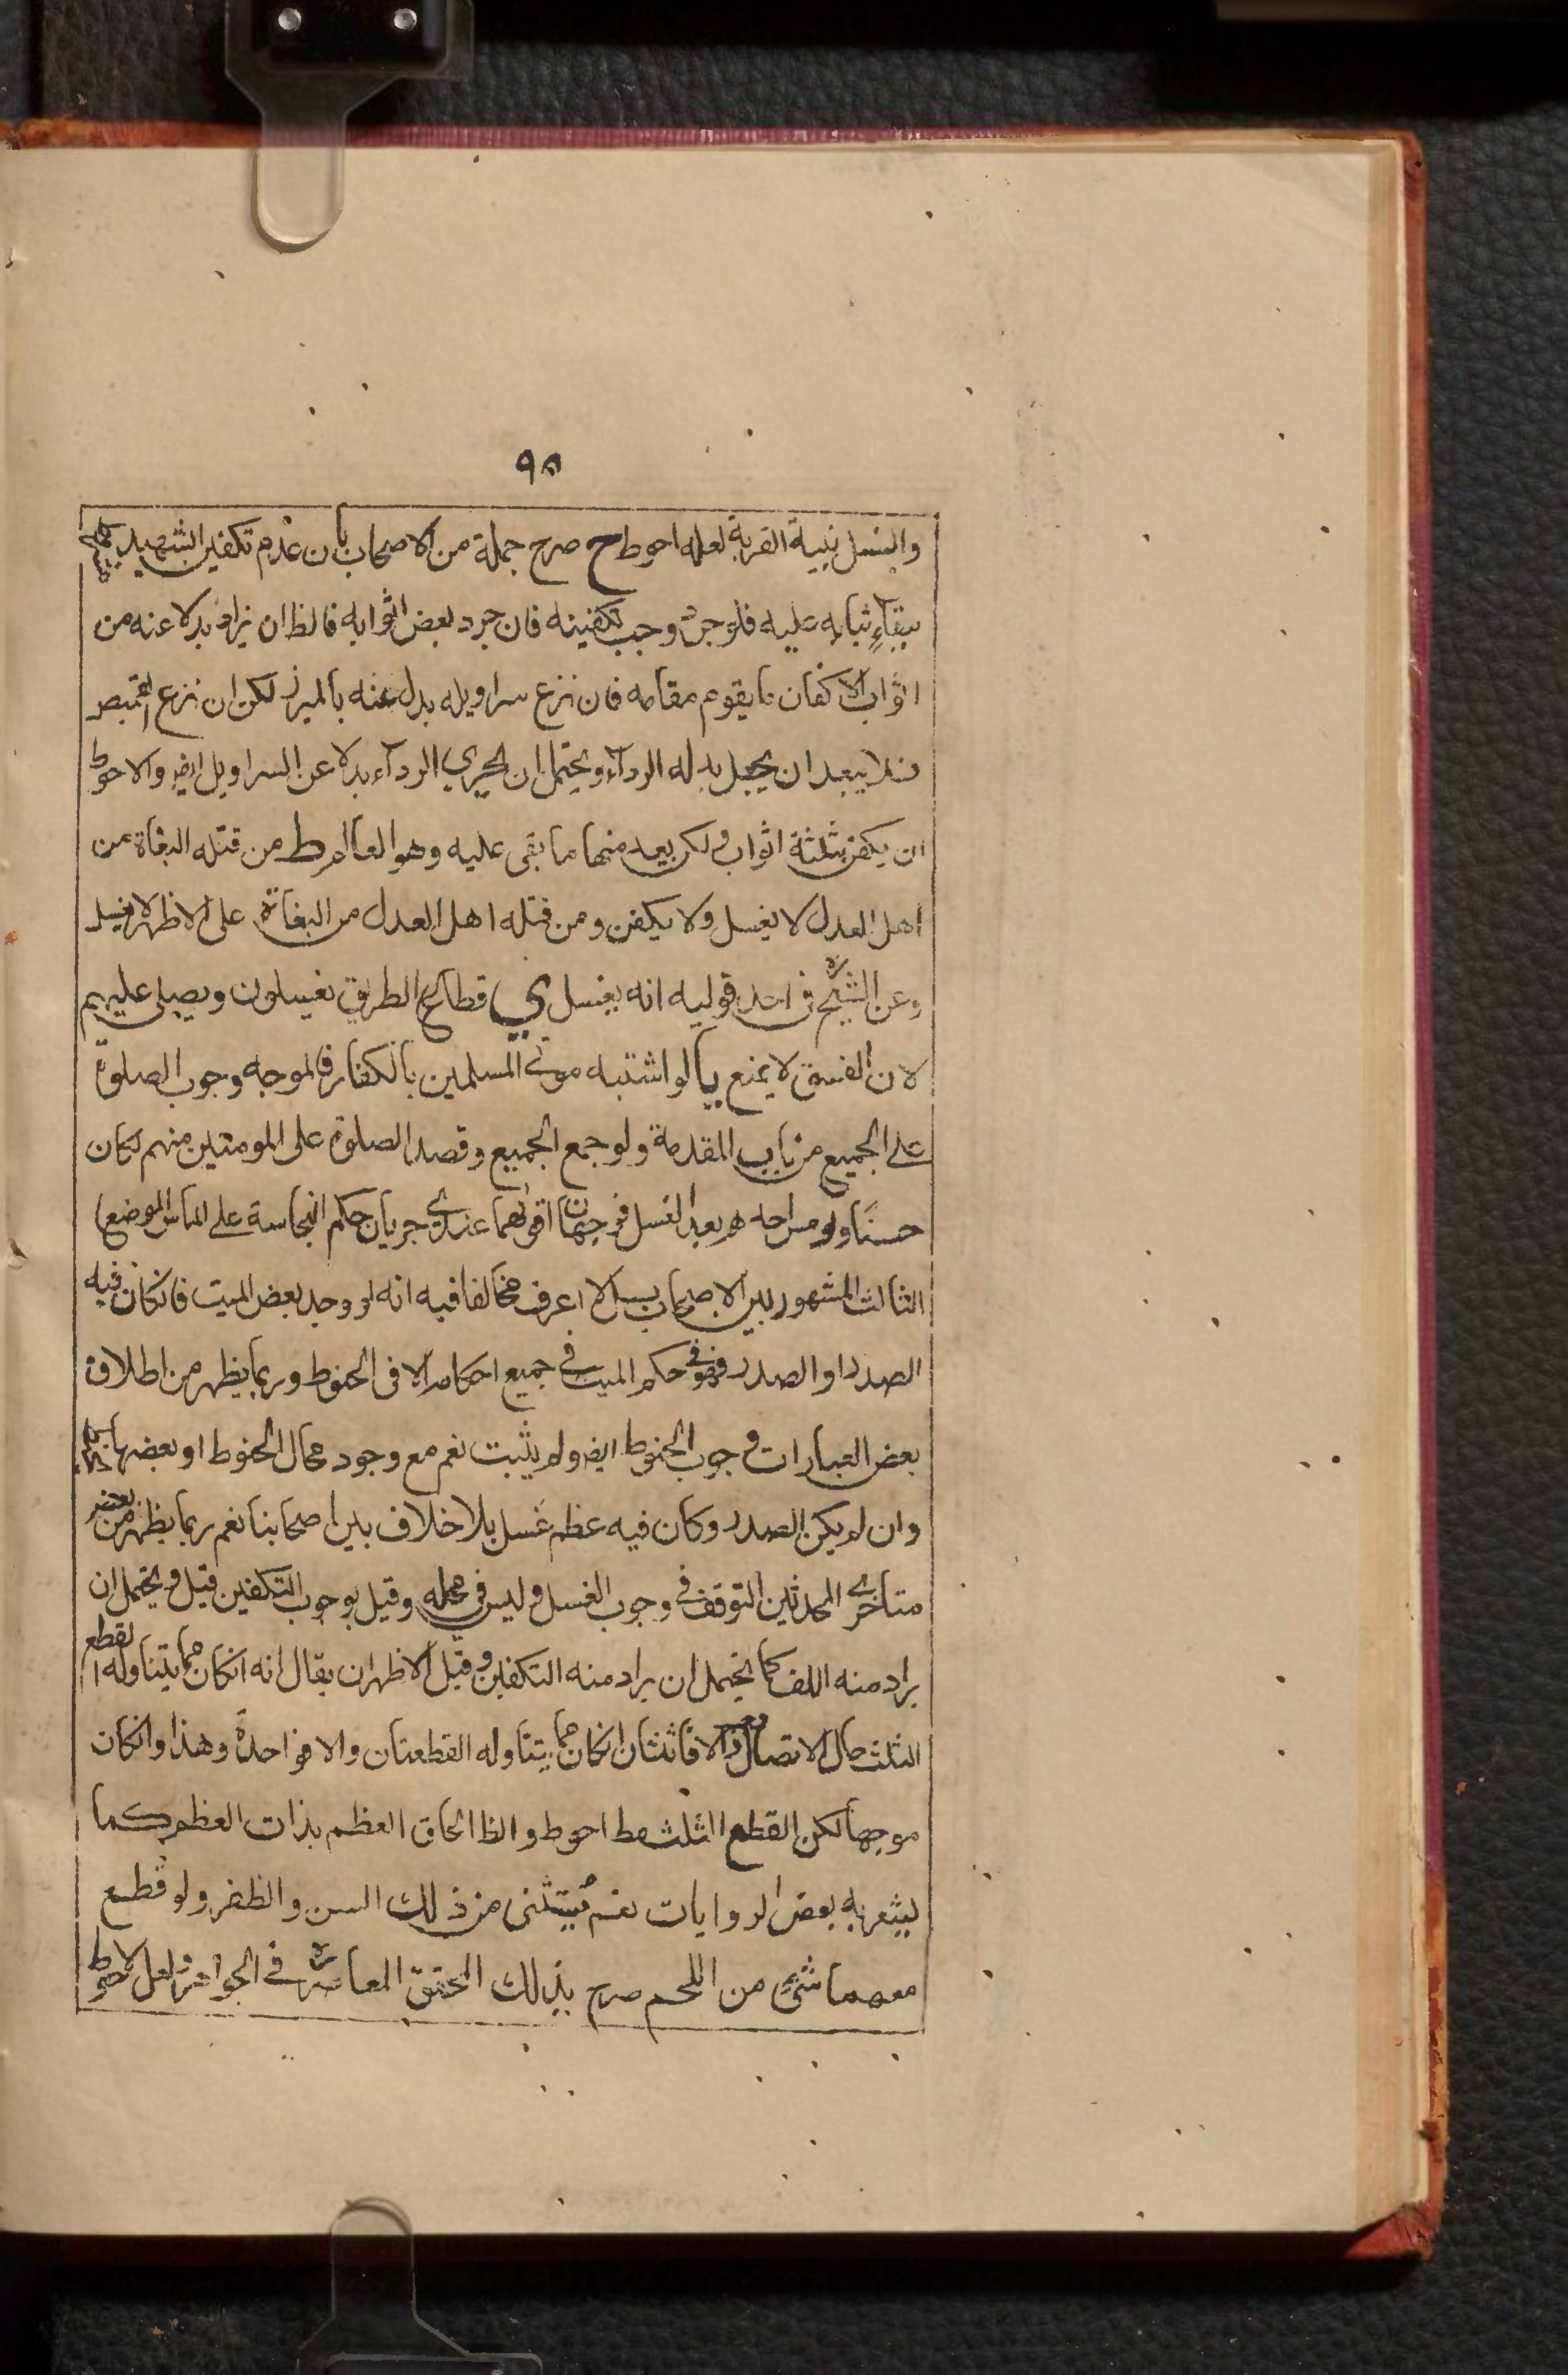 ٩٥
والغسل بنية القربة لعله احوط ح صرح جملة من الاصحاب بان عدم تكفين الشهيد
ببقاء ثيابه عليه فلو جرد وجب تكفينه فان جرد بعض اثوابه فالظ ان يزاد بدلا عنه من
اثواب الاكفان ما يقوم مقامه فان نزع سراويله بدل عنه بالميزر لكن ان نزع القميص
فلا يبعد ان يجعل بدله الرداء ويحتمل ان يجري الرداء بدلا عن السراويل ايض والاحوط
ان يكفن بثلثة اثواب ولكن بعد منها ما بقى عليه وهو العالم ط من قتله البغاة من
اهل العدل لا يغسل ولا يكفن ومن قتله اهل العدل من البغاة على الاظهر لا يغسل
وعن الشيخ ره في احد قوليه انه يغسل ي قطاع الطريق يغسلون ويصلى عليهم
لان الفسق لا يمنع يا لو اشتبه موتى المسلمين بالكفار فالموجه وجوب الصلوة
على الجميع من باب المقدمة ولو جمع الجميع وقصد الصلوة على المومنين منهم لكان
حسنا ولو مس احدهم بعد الغسل فوجهان اقواهما عندي جريان حكم النجاسة على الماس الموضع
الثالث المشهور بين الاصحاب بل لا اعرف مخالفا فيه انه لو وجد بعض الميت فان كان فيه
الصدر او الصدر فهو في حكم الميت في جميع احكامه الا في الحنوط وربما يظهر من اطلاق
بعض العبارات وجوب الحنوط ايض ولم يثبت نعم مع وجود محال الحنوط او بعضها
وان لم يكن الصدر وكان فيه عظم غسل بلا خلاف بين اصحابنا نعم ربما يظهر من بعض
متأخري المحدثين التوقف في وجوب الغسل وليس في محله وقيل بوجوب التكفين قيل ويحتمل ان
يراد منه اللف كما يحتمل ان يراد منه التكفين وقيل الاظهر ان يقال انه انكان مما يتناوله القطع
الثلث حال الاتصال والا فاثنتان انكان مما يتناوله القطعتان والا فواحدة وهذا وانكان
موجها لكن القطع الثلث مط احوط والظ الحاق العظم بذات العظم كما
يشعر به بعض الروايات نعم يستثنى من ذلك السن والظفر ولو قطع
معهما شيء من اللحم صرح بذلك المحقق المعاصر ره في الجواهر ولعل الاحوط